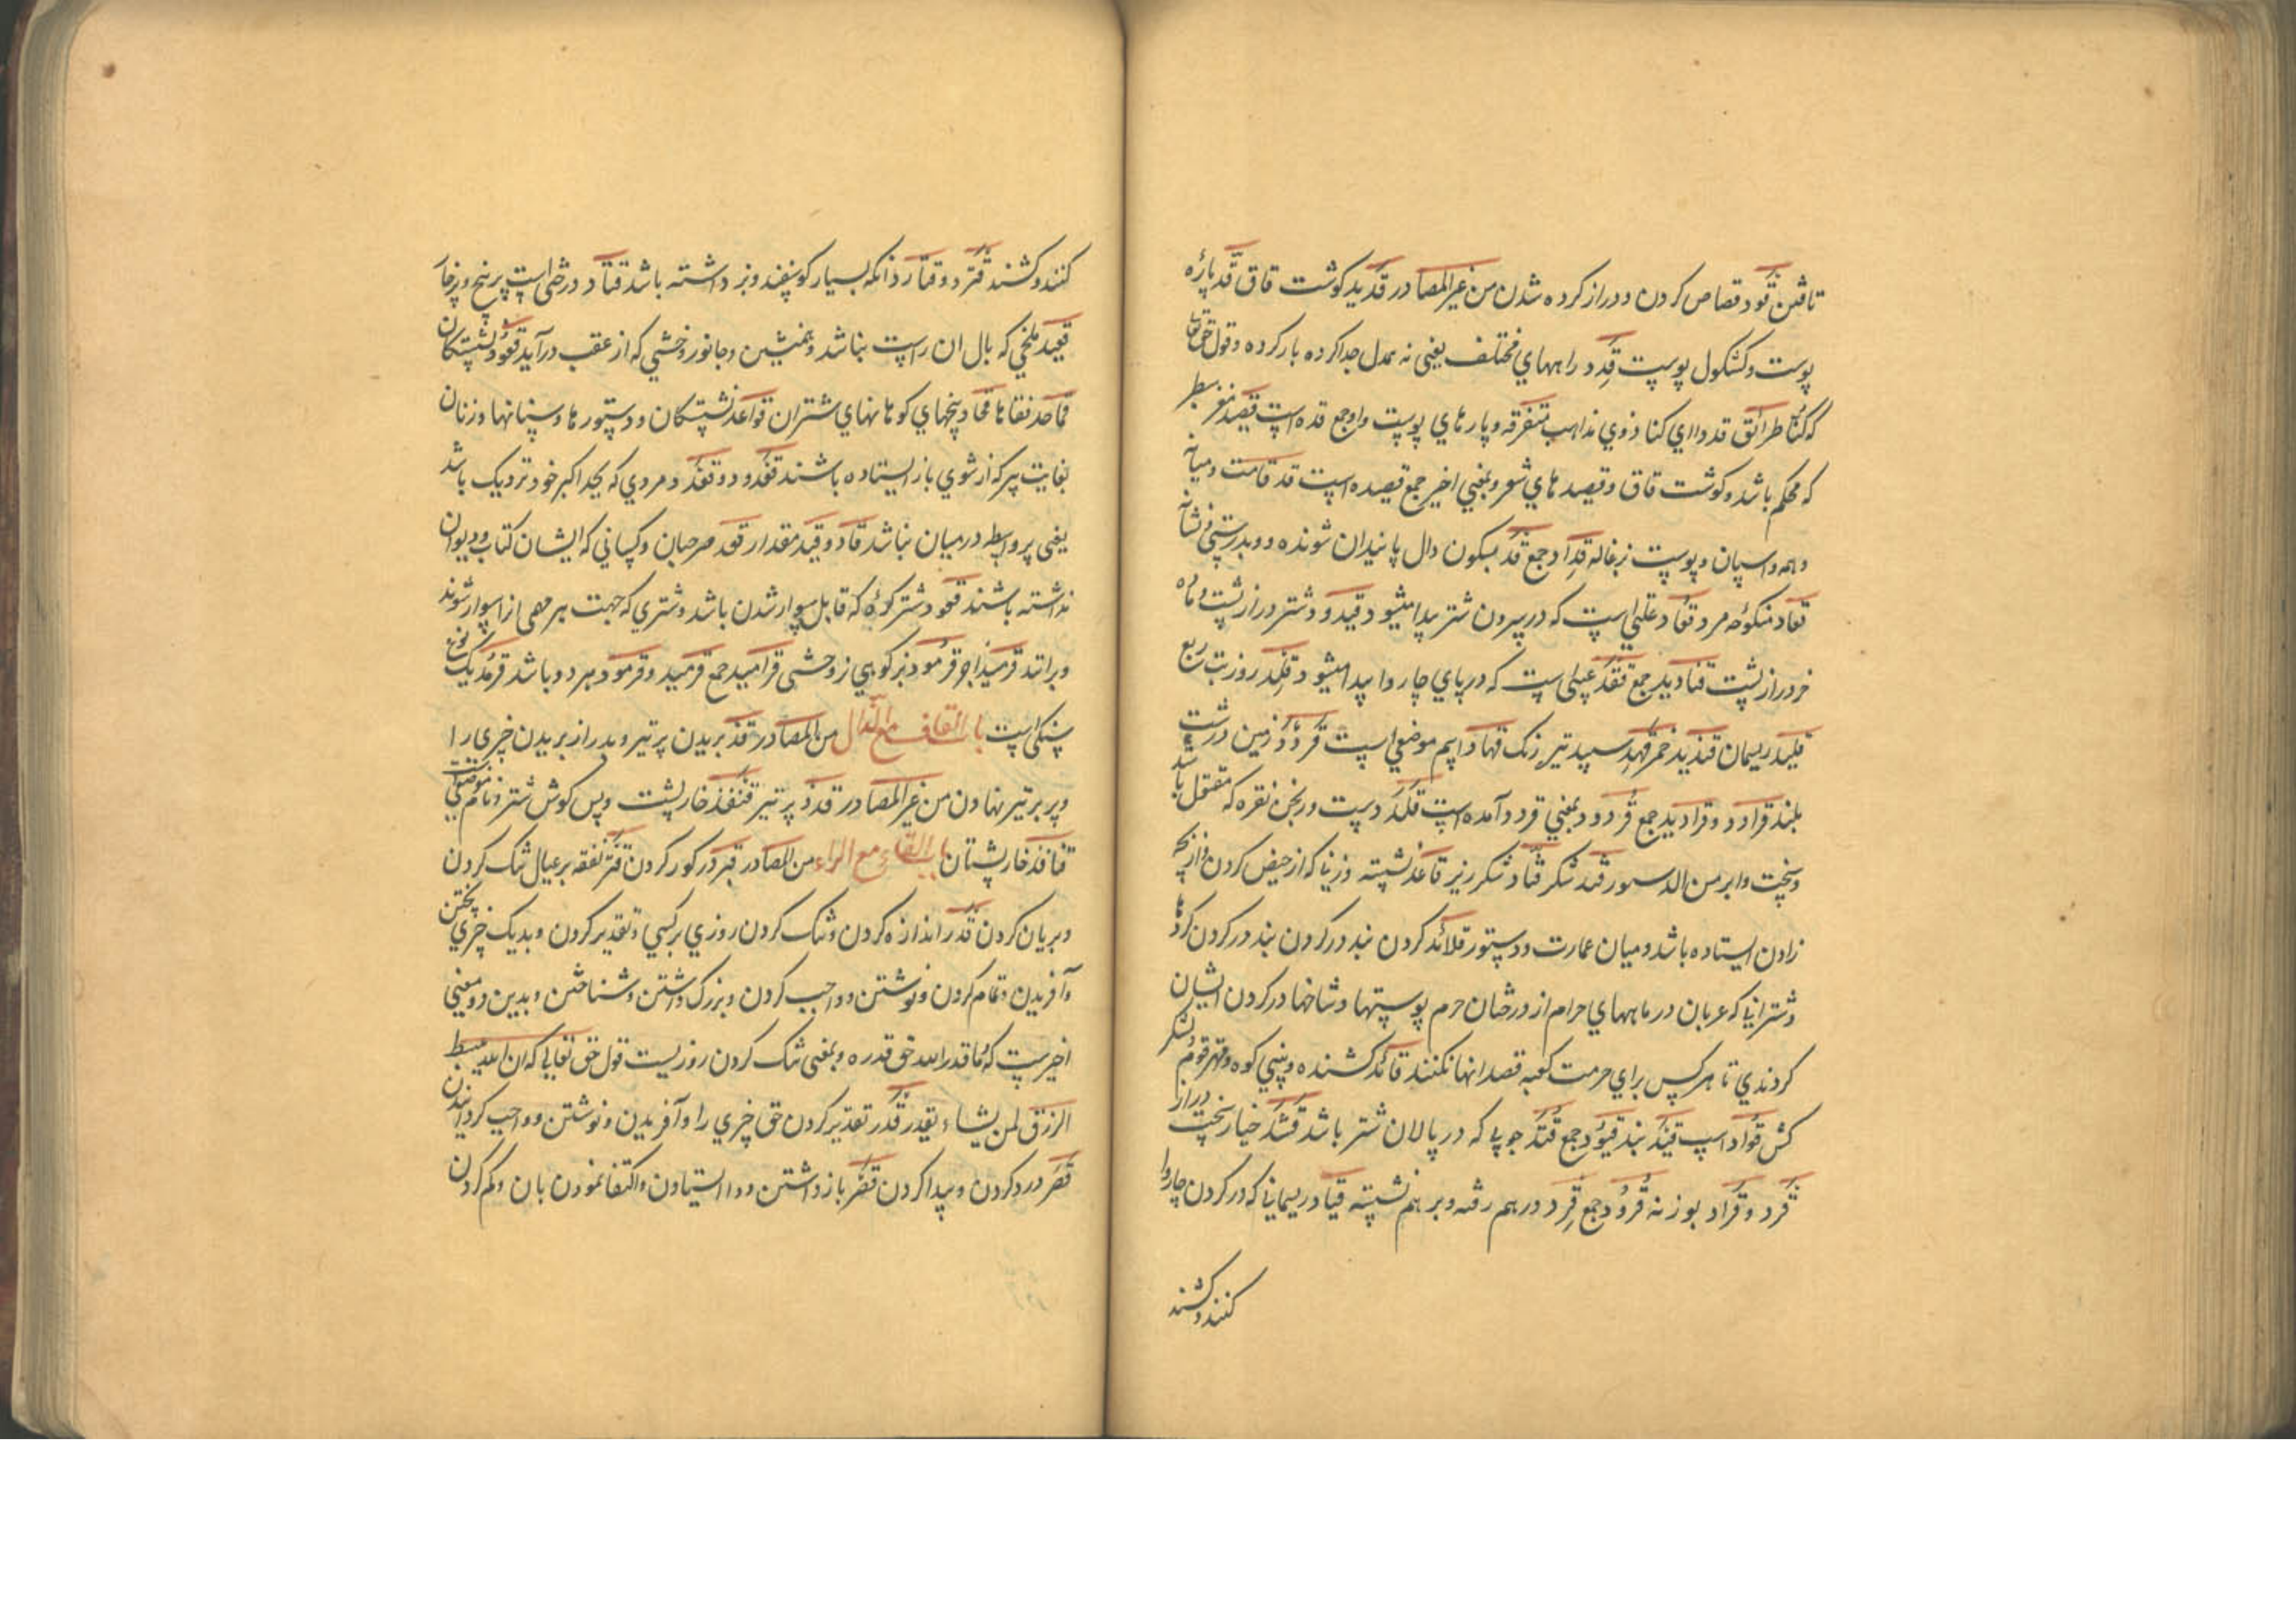 تافتن قود قصاص کردن و دراز کرده شدن من غیر المصادر قدید کوشت قاق قد پاره
پوست و کشکول پوست قدد راههای مختلف یعنی نه عدل جدا کرده بار کرده و قول حق تعا
که کنا طرائق قددا ای کنا ذوی مذاهب متفرقه و پارهای پوست و او جمع قده است قصید مغز سطبر
که محکم باشد و کوشت قاق و قصیدهای شعر و بمعنی اخیر جمع قصیده است قد قامت و میانه
و پوست بزغاله قداد جمع قد بسکون دال پانیدان شونده و بدرستی و نشانه
قعاد منکوحه مرد قعاد علتی است که در سرون شتر پیدا میشود قیدود شتر دراز پشت و ماده
خر دراز پشت قیادید جمع قفد عیبی است که در پای چاروا پیدا میشود قلد روز تب ربع
قلید ریسمان قندید خمر قهد سپید تیره رنک قهاد اسم موضعی است قردد زمین درشت
بلند قرادد و قرادید جمع قردود بمعنی قردد آمده است قلد دست ورنجن نقره که مفتول باشد
و سمور قند شکر قناد شکر ریز قاعد نشسته و زنی که از حیض کردن و از بچه
زادن ایستاده باشد و میان عمارت و دستور قلائد کردن بند در کردن بند در کردن کردها
و شترانی که عربان در ماههای حرام از درختان حرم پوستها و شاخها در کردن ایشان
کردندی تا هر کس برای حرمت کعبه قصد انها نکنند قائد کشنده و بینی کوه و مهتر قوم لشکر
کش قواد اسپ قید بند قیود جمع قتد چوبی که در پالان شتر باشد قثد خیار سخت دراز
قرد و قراد بوزنه قرود جمع قرد درهم رفته و بر هم نشسته قیاد ریسمانی که در کردن چاروا
کنند و کشند
کنند و کشند قترد و قتارد انکه بسیار کوسفند و بز داشته باشد قتاد درختی است پر خار
قعید ملخی که بال ان راست نباشد و همنشین و جانور وحشی که از عقب درآید قعود نشستکان
قماحد نقاها قحاد بیخهای کوهانهای شتران قواعد نشستکان و دستورها و بنیانها و زنان
بغایت پیر که از شوی باز ایستاده باشند قعدد و قعدد مردی که بجد اکبر خود نزدیک باشد
یعنی پر واسطه درمیان نباشد قاد و قید مقدار قعد خرجیان و کسانی که ایشان کتاب و دیوان
نداشته باشند قعود شتر کره که قابل سوار شدن باشد و شتری که جهت هر مهمی از اسوار شوند
و برانند قرمید اجر قرمود بز کوهی نر وحشی قرامید جمع قرمید و قرمود هر دو باشد قرمد یک نوع
سنکی است باب القاف مع الذال من المصادر قذ بریدن پر تیر و بدراز بریدن چیزی را
و پر بر تیر نهادن من غیر المصادر قذذ پر تیر قنفذ خارپشت و پس کوش شتر و نام موضعی
قنافذ خارپشتان باب القاف مع الراء من المصادر قبر در کور کردن قتر نفقه بر عیال تنک کردن
و بریان کردن قدر اندازه کردن و تنک کردن روزی بر کسی و تقدیر کردن و بدیک چیزی پختن
و آفریدن و تمام کردن و نوشتن و واجب کردن و بزرک داشتن و شناختن و بدین دو معنی
اخیرست که ما قدرا الله حق قدره و بمعنی تنک کردن روزیست قول حق تعالی که ان الله یبسط
الرزق لمن یشاء و یقدر قدر تقدیر کردن حق چیزی را و آفریدن و نوشتن و واجب کردانیدن
قصر درد کردن و پیدا کردن قصر باز داشتن و وا ایستادن و اکتفا نمودن بان و کم کردن